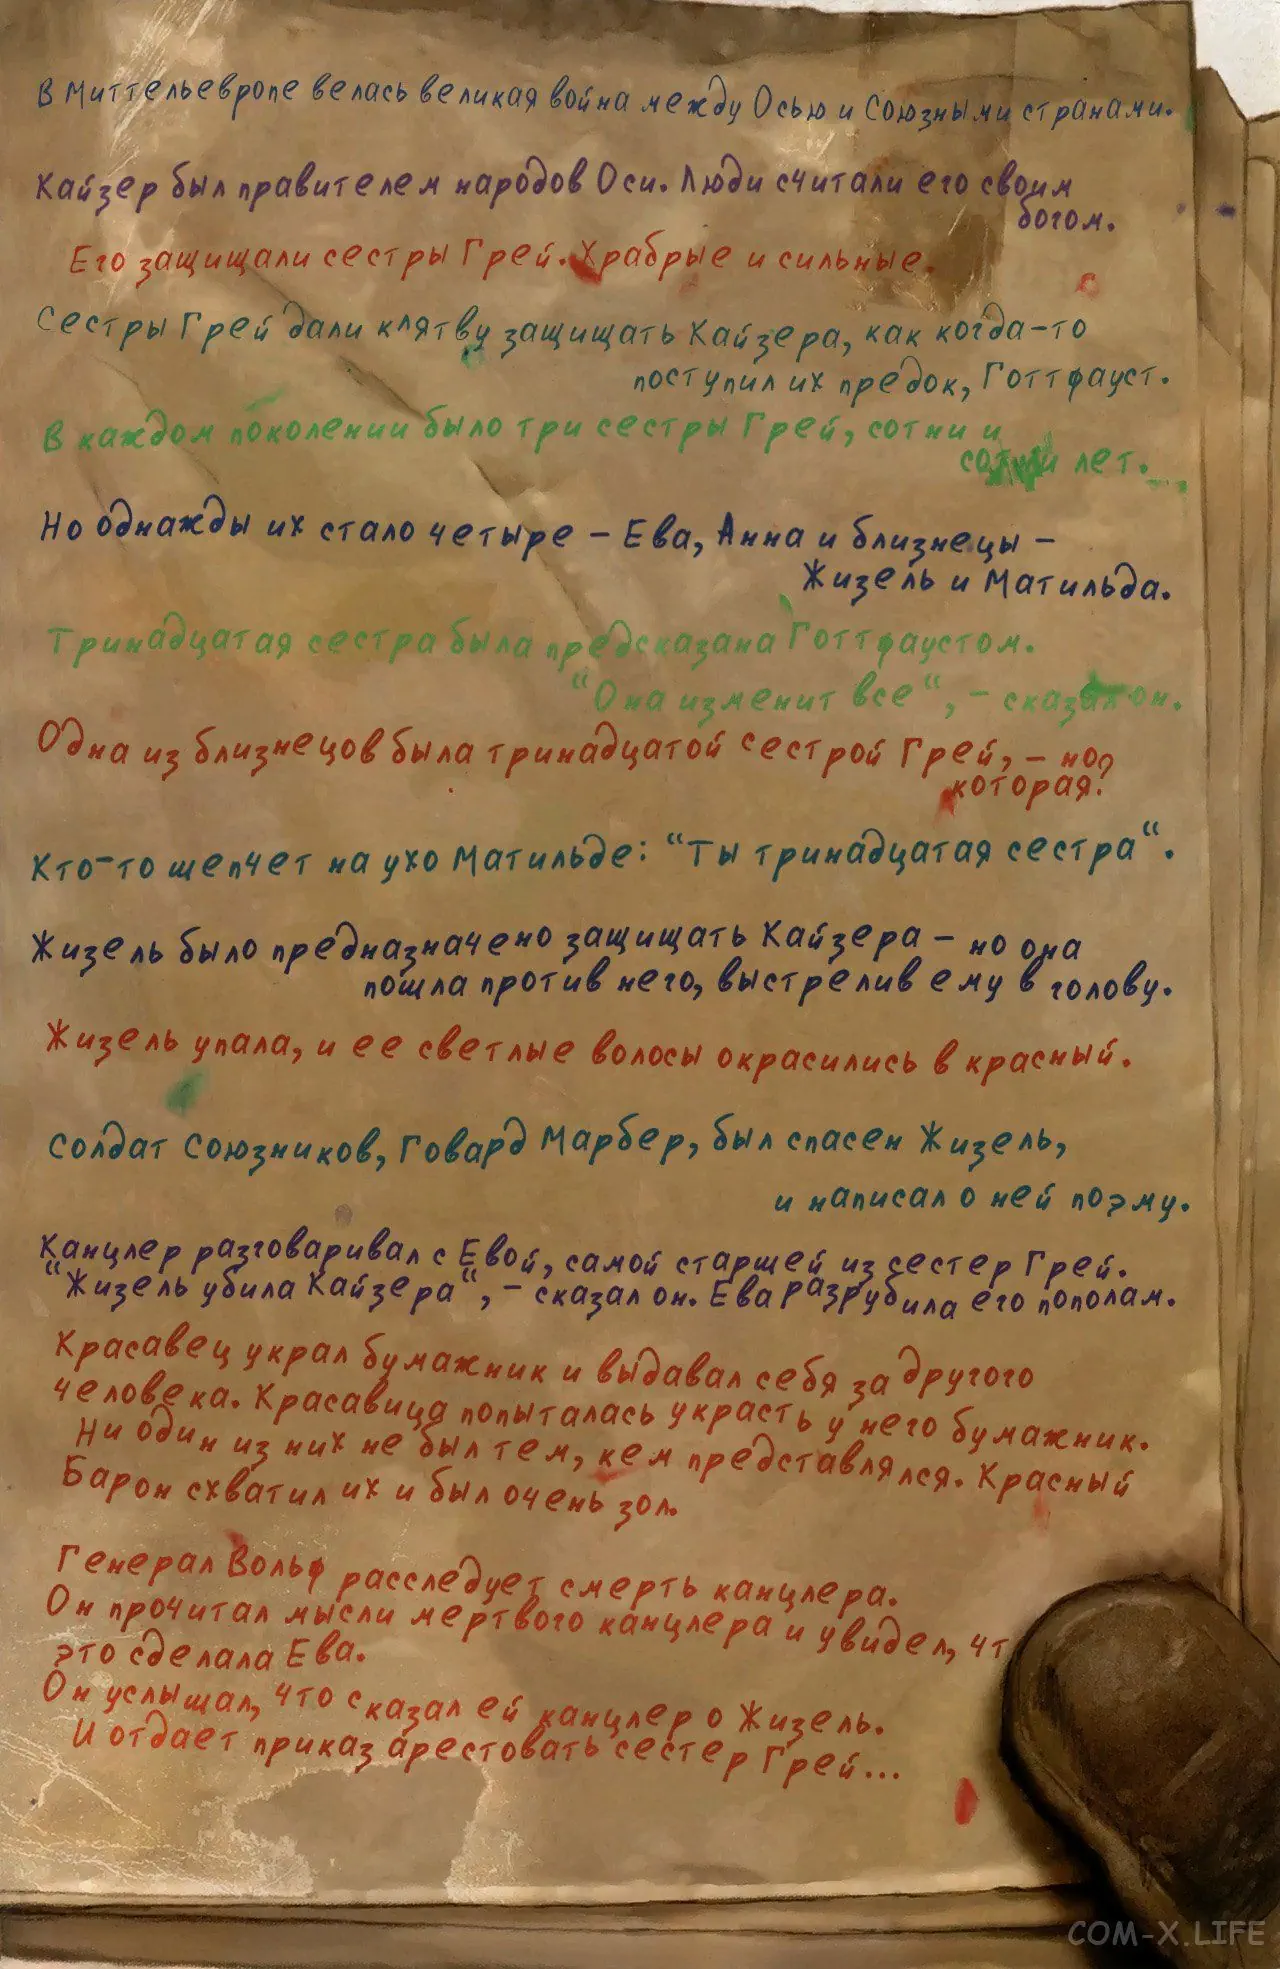 В Миттельевропе велась великая война между Осью и Союзными странами.
Кайзер был правителем народов Оси. Люди считали его своим
богом.
Его защищали сестры Грей. Храбрые и сильные.
Сестры Грей дали клятву защищать Кайзера, как когда-то
поступил их предок, Готтфауст.
В каждом поколении было три сестры Грей, сотни и
сотни лет.
Но однажды их стало четыре – Ева, Анна и близнецы –
Жизель и Матильда.
Тринадцатая сестра была предсказана Готтфаустом.
"Она изменит все", – сказал он.
Одна из близнецов была тринадцатой сестрой Грей, – но
которая?
Кто-то шепчет на ухо Матильде: "Ты тринадцатая сестра".
Жизель было предназначено защищать Кайзера – но она
пошла против него, выстрелив ему в голову.
Жизель упала, и ее светлые волосы окрасились в красный.
Солдат Союзников, Говард Марбер, был спасен Жизель,
и написал о ней поэму.
Канцлер разговаривал с Евой, самой старшей из сестер Грей.
"Жизель убила Кайзера", – сказал он. Ева разрубила его пополам.
Красавец украл бумажник и выдавал себя за другого
человека. Красавица попыталась украсть у него бумажник.
Ни один из них не был тем, кем представлялся. Красный
Барон схватил их и был очень зол.
Генерал Вольф расследует смерть канцлера.
Он прочитал мысли мертвого канцлера и увидел, чт
это сделала Ева.
Он услышал, что сказал ей канцлер о Жизель.
И отдает приказ арестовать сестер Грей...
COM-X.LIFE